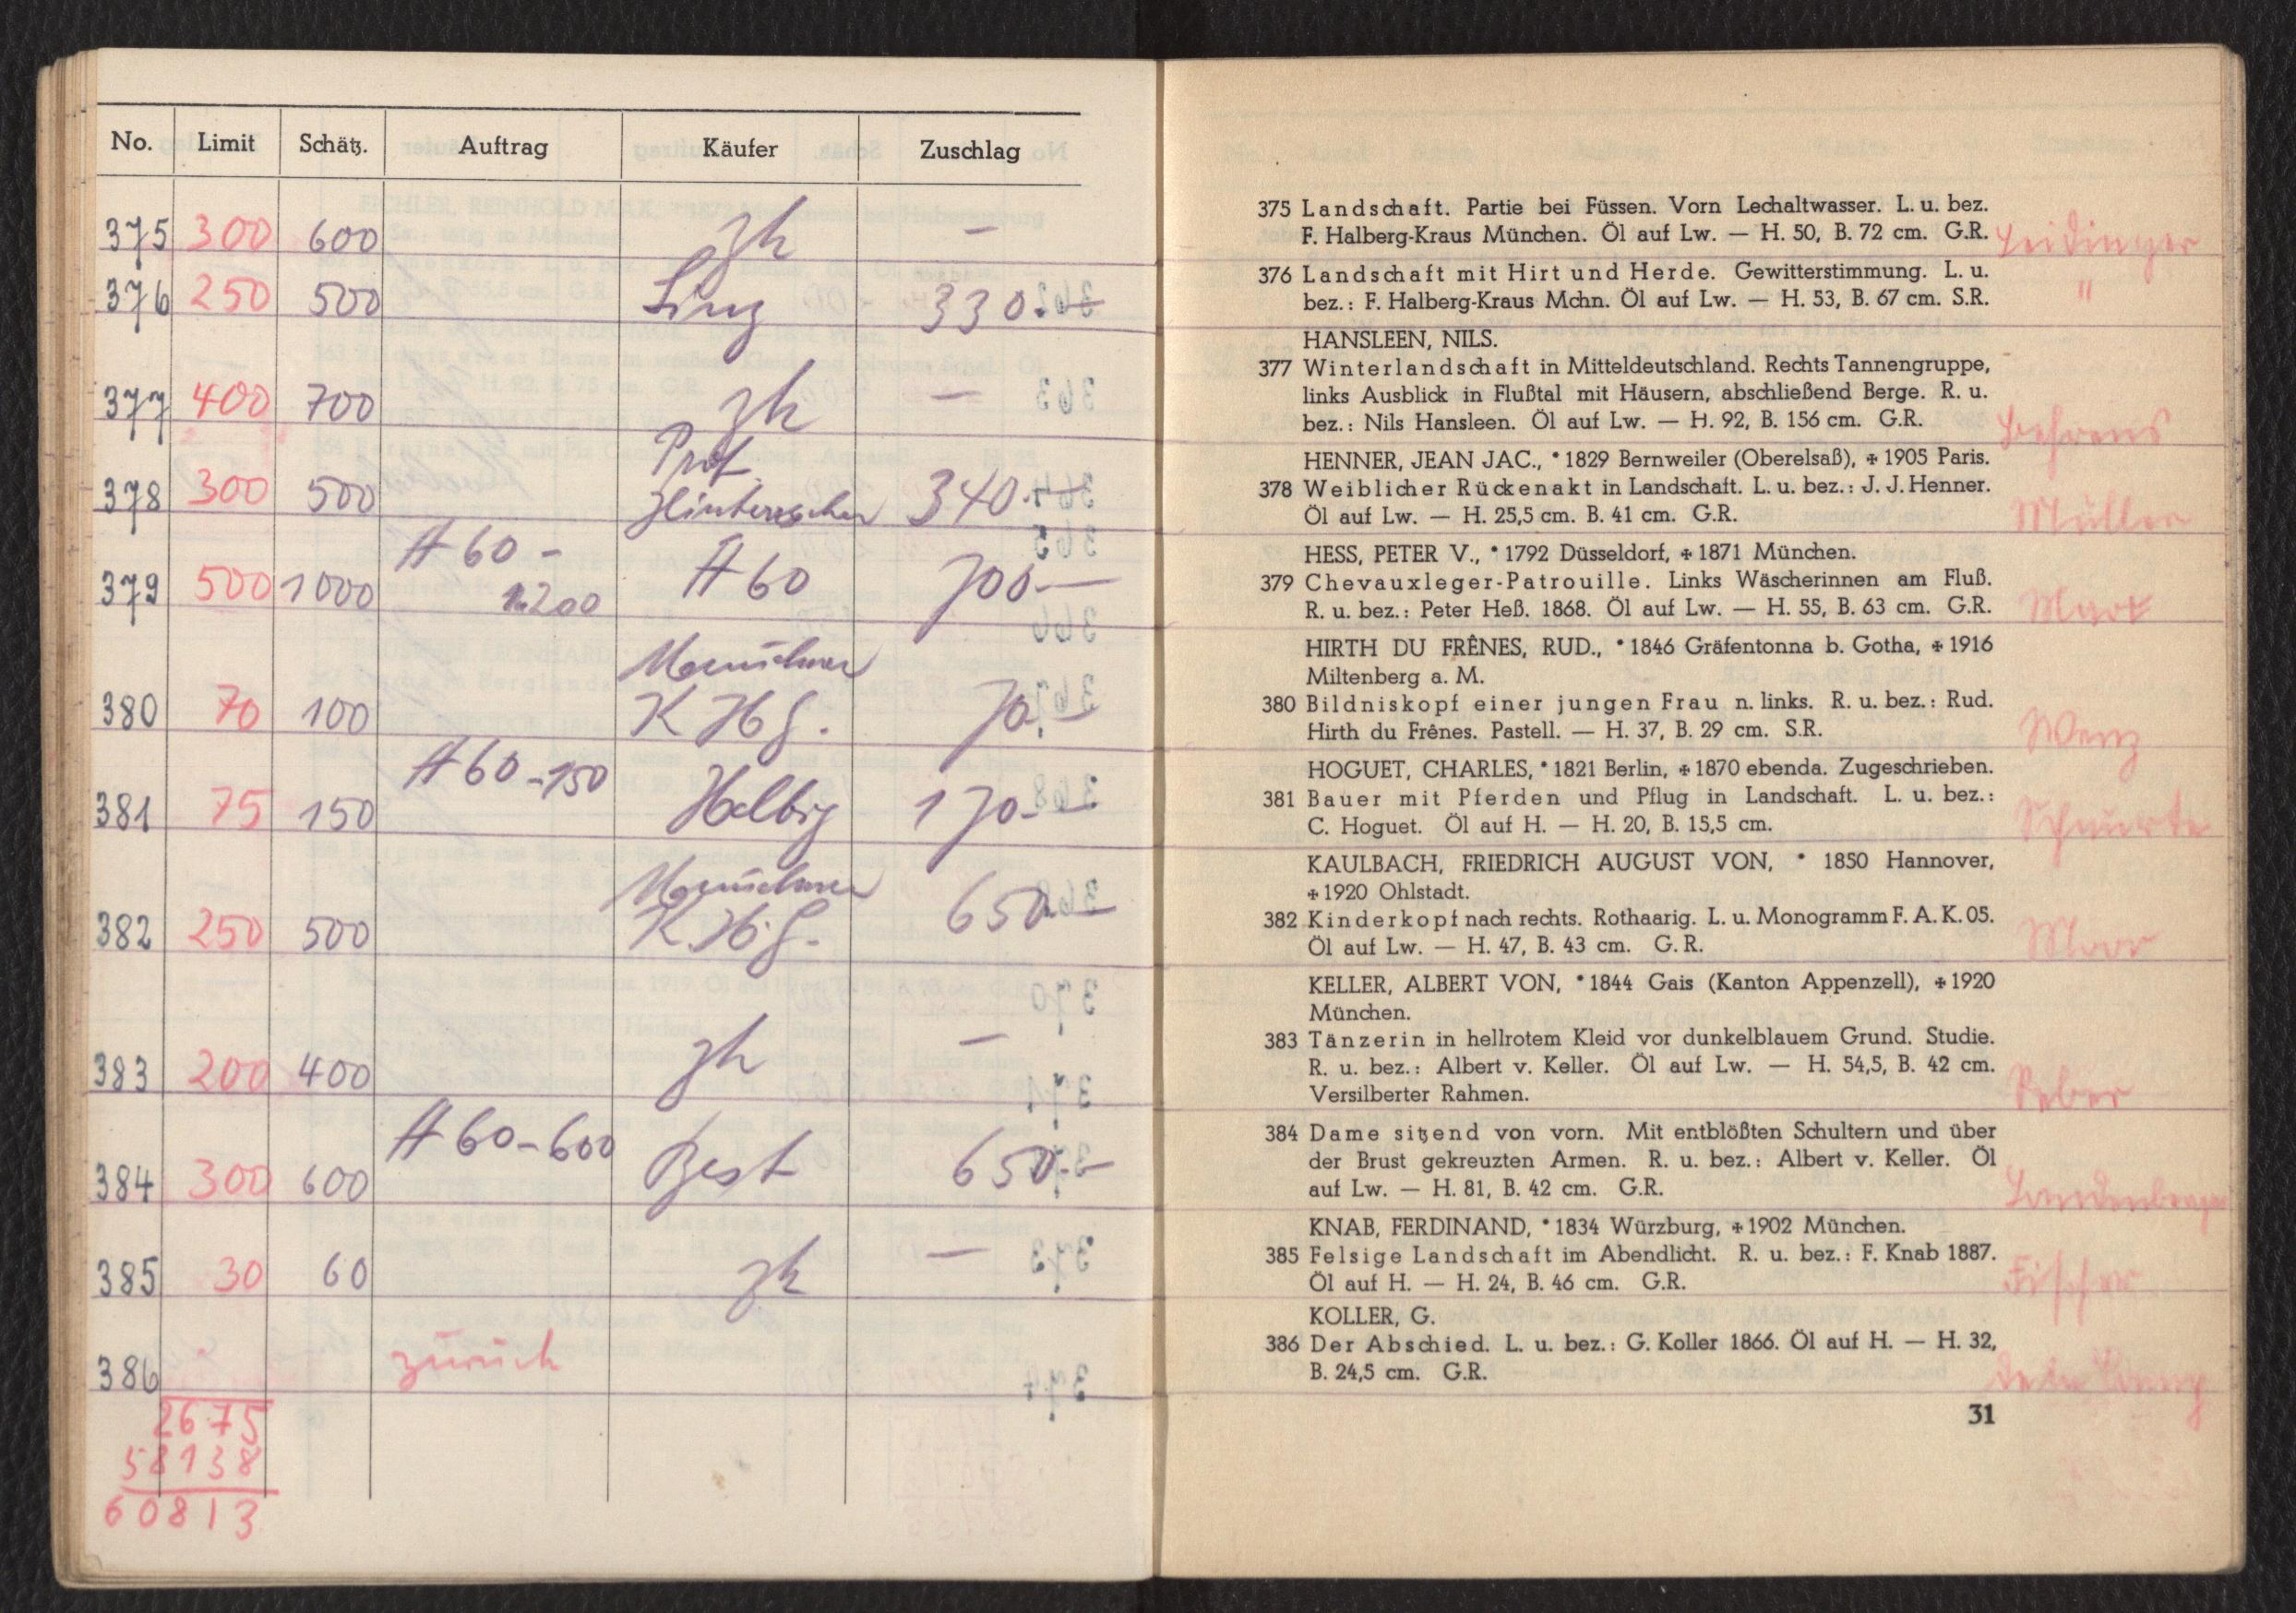 No. Limit Schätz. Auftrag Käufer Zuschlag
375 300 600 zh —
376 250 500 Ling 330.—
377 400 700 zh —
Prof.
378 300 500 340.—
A 60 -
379 500 1000 1200 A 60 700.—
380 70 100 K H G. 70.—
A 60 - 150
381 75 150 Helbig 170.—
382 250 500 K H G. 650.—
383 200 400 zh —
A 60 - 600
384 300 600 Best 650.—
385 30 60 zh —
386 zurück
2675
58138
60813
375 Landschaft. Partie bei Füssen. Vorn Lechaltwasser. L. u. bez.
F. Halberg-Kraus München. Öl auf Lw. — H. 50, B. 72 cm. G.R.
Leidinger
376 Landschaft mit Hirt und Herde. Gewitterstimmung. L. u.
bez.: F. Halberg-Kraus Mchn. Öl auf Lw. — H. 53, B. 67 cm. S.R.
"
HANSLEEN, NILS.
377 Winterlandschaft in Mitteldeutschland. Rechts Tannengruppe,
links Ausblick in Flußtal mit Häusern, abschließend Berge. R. u.
bez.: Nils Hansleen. Öl auf Lw. — H. 92, B. 156 cm. G.R.
Behrens
HENNER, JEAN JAC., * 1829 Bernweiler (Oberelsaß), ✠ 1905 Paris.
378 Weiblicher Rückenakt in Landschaft. L. u. bez.: J. J. Henner.
Öl auf Lw. — H. 25,5 cm. B. 41 cm. G.R.
Müller
HESS, PETER V., * 1792 Düsseldorf, ✠ 1871 München.
379 Chevauxleger-Patrouille. Links Wäscherinnen am Fluß.
R. u. bez.: Peter Heß. 1868. Öl auf Lw. — H. 55, B. 63 cm. G.R.
HIRTH DU FRÊNES, RUD., * 1846 Gräfentonna b. Gotha, ✠ 1916
Miltenberg a. M.
380 Bildniskopf einer jungen Frau n. links. R. u. bez.: Rud.
Hirth du Frênes. Pastell. — H. 37, B. 29 cm. S.R.
Wenz
HOGUET, CHARLES, * 1821 Berlin, ✠ 1870 ebenda. Zugeschrieben.
381 Bauer mit Pferden und Pflug in Landschaft. L. u. bez.:
C. Hoguet. Öl auf H. — H. 20, B. 15,5 cm.
KAULBACH, FRIEDRICH AUGUST VON, * 1850 Hannover,
✠ 1920 Ohlstadt.
382 Kinderkopf nach rechts. Rothaarig. L. u. Monogramm F. A. K. 05.
Öl auf Lw. — H. 47, B. 43 cm. G. R.
KELLER, ALBERT VON, * 1844 Gais (Kanton Appenzell), ✠ 1920
München.
383 Tänzerin in hellrotem Kleid vor dunkelblauem Grund. Studie.
R. u. bez.: Albert v. Keller. Öl auf Lw. — H. 54,5, B. 42 cm.
Versilberter Rahmen.
384 Dame sitzend von vorn. Mit entblößten Schultern und über
der Brust gekreuzten Armen. R. u. bez.: Albert v. Keller. Öl
auf Lw. — H. 81, B. 42 cm. G.R.
KNAB, FERDINAND, * 1834 Würzburg, ✠ 1902 München.
385 Felsige Landschaft im Abendlicht. R. u. bez.: F. Knab 1887.
Öl auf H. — H. 24, B. 46 cm. G.R.
Fischer
KOLLER, G.
386 Der Abschied. L. u. bez.: G. Koller 1866. Öl auf H. — H. 32,
B. 24,5 cm. G.R.
31